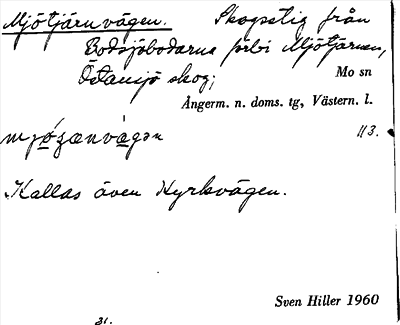 Mjötjärnvägen. Skogsstig från
Bodsjöbodarna förbi Mjötjärnen,
Östansjö skog; Mo sn
Ångerm. n. doms. tg, Västern. l.
113.
Kallas även Kyrkvägen.
Sven Hiller 1960
31.